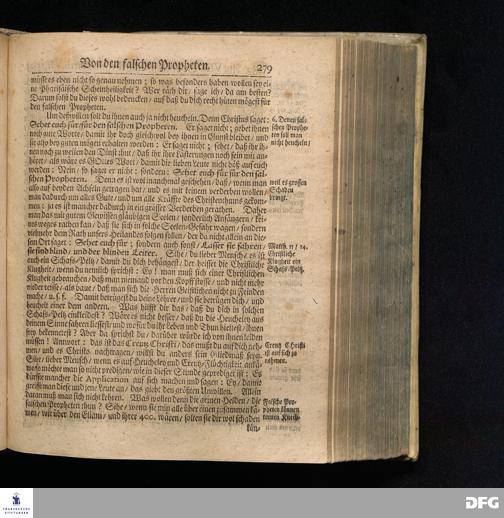 Von den falschen Propheten. 279
müsse es eben nicht so genau nehmen; so was besonders haben wollen sey ei-
ne Pharisäische Scheinheiligkeit? Wer räth dir/ sage ich/ da am besten?
Darum solst du dieses wohl bedencken/ auf daß du dich recht hüten mögest für
den falschen Propheten.
Um deßwillen solt du ihnen auch ja nicht heucheln. Denn Christus saget:
Sehet euch für/ für den falschen Propheten. Er saget nicht: gebet ihnen
noch gute Worte/ damit ihr doch gleichwol bey ihnen in Gunst bleibet/ und
sie also bey guten mögen erhalten werden: Er saget nicht: sehet/ daß ihr ih-
nen noch zu weilen das Dienst thut/ daß ihr ihre Lästerungen noch fein mit an-
höret/ als wäre es GOttes Wort/ damit die lieben Leute nicht böß auf euch
werden: Nein/ so saget er nicht; sondern: Sehet euch für für den fal-
schen Propheten. Denn es ist wol manchmal geschehen/ daß/ wenn man
also auf beyden Achseln getragen hat/ und es mit keinem verderben wollen/
man dadurch um alles Gute/ und um alle Kräffte des Christenthums gekom-
men: ja es ist mancher dadurch in ein grosser Verderben gerathen. Daher
man das mit gutem Gewissen gläubigen Seelen/ sonderlich Anfängern/ kei-
nes weges rathen kan/ daß sie sich in solche Seelen-Gefahr wagen/ sondern
vielmehr dem Rath unsers Heilandes folgen sollen/ der da nicht allein an die-
sem Ort saget: Sehet euch für; sondern auch sonst/ Lasset sie fahren/
sie sind blind/ und der blinden Leiter. Sihe/ du lieber Mensch/ es ist
auch ein Schafs-Peltz/ damit du dich behängest/ der heisset die Christliche
Klugheit/ wenn du nemlich sprichst: Ey! man muß sich einer Christlichen
Klugheit gebrauchen/ daß man niemand vor den Kopff stosse/ und nicht mehr
nieder reisse/ als baue/ daß man sich die Herren Geistlichen nicht zu Feinden
mache/ u. s. f. Damit betrügest du deine Lehrer/ und sie betrügen dich/ und
heuchelt einer dem andern. Was hilfft dir das/ daß du dich in solchen
Schafs-Peltz einkleidest? Wäre es nicht besser/ daß du die Heucheley aus
deinem Sinne fahren liessest/ und wofür du ihr Leben und Thun hieltest/ ihnen
frey bekennetest? Aber da sprichst du/ darüber würde ich von ihnen leiden
müssen! Antwort: das ist das Creutz Christi/ das must du auf dich neh-
men/ und es Christo nachtragen/ willst du anders sein Gliedmaß seyn.
Sihe/ lieber Mensch/ wenn es auf Heucheley und Creutz-Flüchtigkeit ankä-
me/ so möchte man so nicht predigen/ wie in dieser Stunde geprediget ist: Es
dürffte mancher die Application auf sich machen und sagen: Ey/ damit
greifft man diese und jene Leute an/ das giebt den größten Unwillen. Allein
daran muß man sich nicht kehren. Was wollen denn die armen Helden/ die
falschen Propheten thun? Sihe/ wenn sie nun alle über einen zusammen kä-
men/ wie über den Eliam/ und ihrer 400. wären/ solten sie dir wol schaden
kön-
6. Denen fal-
schen Prophe-
ten soll man
nicht heucheln/
weil es grossen
Schaden
bringt.
Matth. 15/14.
Christliche
Klugheit ein
Schafs-Peltz.
Creutz Christi
ist auf sich zu
nehmen.
Falsche Pro-
pheten können
DFG